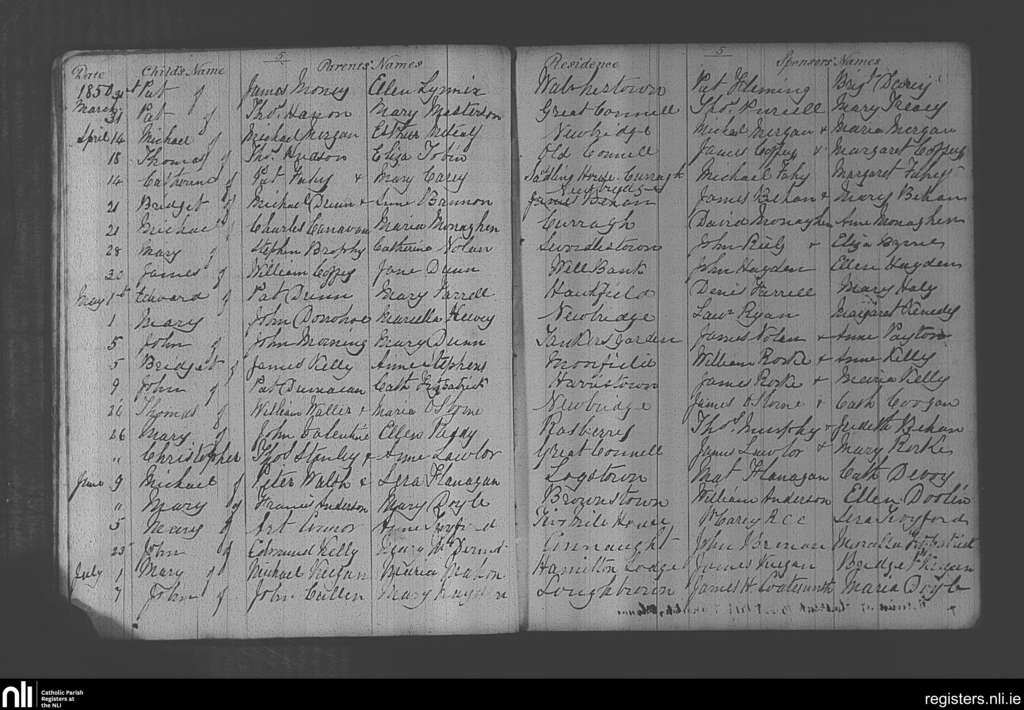 5 5
Date Child's Name Parents Names Residence Sponsors Names
1850 Pat of James Money Ellen Walshestown Pat Fleming
March 31 Pat of Thos. Mary Masterson Great Connell Thos. Purcell Mary Treacy
April 14 Michael of Michael Mergan Esther Newbridge Michael Mergan & Maria Mergan
18 Thomas of Thos. Hudson Eliza Tobin Old Connell James Coffey & Margaret Coffey
14 Catherine of Pat Fahy & Mary Carey House Curragh Michael Fahy Margaret Fahey
Newbridge
21 Bridget of Michael Dunn & Anne Bannon James Behan James Behan & Mary Behan
21 Michael of Charles Canavan Maria Monaghen Curragh David Monaghen Anne Monaghen
28 Mary of Stephen Brophy Catherine Nolan Swordestown John & Eliza Byrne
30 James of William Coffey Jane Dunn Well Bank John Hayden Ellen Hayden
May 1st Edward of Pat Dunn Mary Farrell Hawkfield Farrell Mary Haly
1 Mary John Donohoe Newbridge Law. Ryan Margaret Kenedy
5 John of John Mary Dunn Garden James Nolan & Anne Payton
5 Bridget of James Kelly Anne Stephens Moorfield William Rorke & Anne Kelly
9 John of Pat Cath Fitzpatrick Harristown James Rorke & Maria Kelly
26 Thomas of William Waller & Maria Osborne Newbridge James Osborne & Cath Coogan
26 Mary of John Valentine Ellen Peddy Rosberry Thos. Murphy & Judeth Behan
" Christopher Thos Stanley & Anne Lawlor Great Connell James Lawlor & Mary Rorke
June 9 Michael of Peter Walsh & Flanagan Mat Flanagan Cath Devoy
" Mary of Francis Anderson Mary Doyle Brownstown William Anderson Ellen Doolin
5 Mary of Art Mile House Carey RCC
23 John of Edmund Kelly Mary McDermd John Brenan
July 1 Mary of Michael Keegan Maria Mahon Hamilton Lodge James Keegan Bridget Keegan
7 John of John Cullen Mary Loughbrown James H. Maria Doyle
nli Catholic Parish
Registers at
the NLI
registers.nli.ie